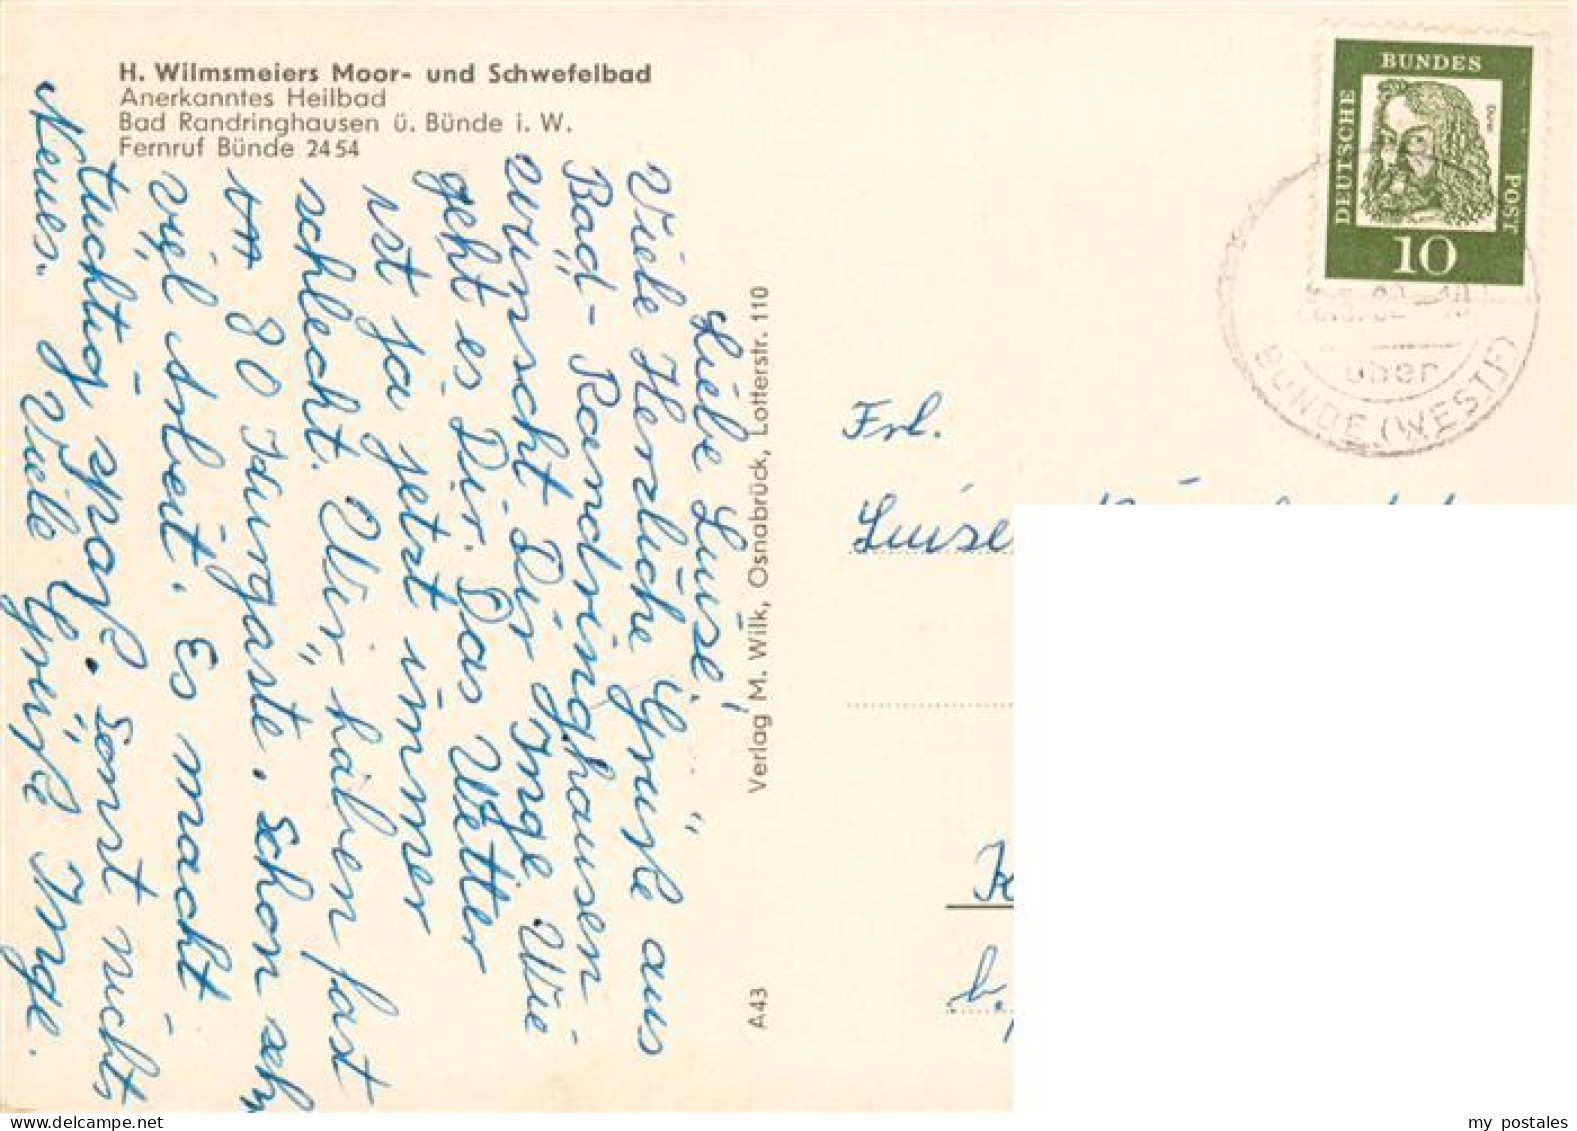 H. Wilmsmeiers Moor- und Schwefelbad
Anerkanntes Heilbad
Bad Randringhausen ü. Bünde i. W.
Fernruf Bünde 2454
Liebe Luise!
Viele Herzliche Grüße aus
Bad-Randringhausen
wünscht Dir Inge Wie
geht es Dir. Das Wetter
ist ja jetzt immer
schlecht. Wir haben fast
80 Kurgäste. Schon sehr
viel Arbeit. Es macht
tüchtig spaß. Sonst nichts
Neues. Viele Grüße Inge.
Verlag M. Wilk, Osnabrück, Lotterstr. 110
A43
DEUTSCHE
BUNDES
POST
Dürer
10
über
BÜNDE (WESTF)
Frl.
Luise
my postales